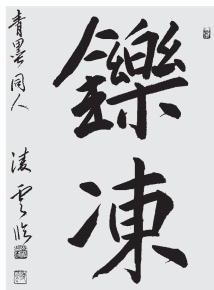 鑠凍
青墨同人
凌雲臨